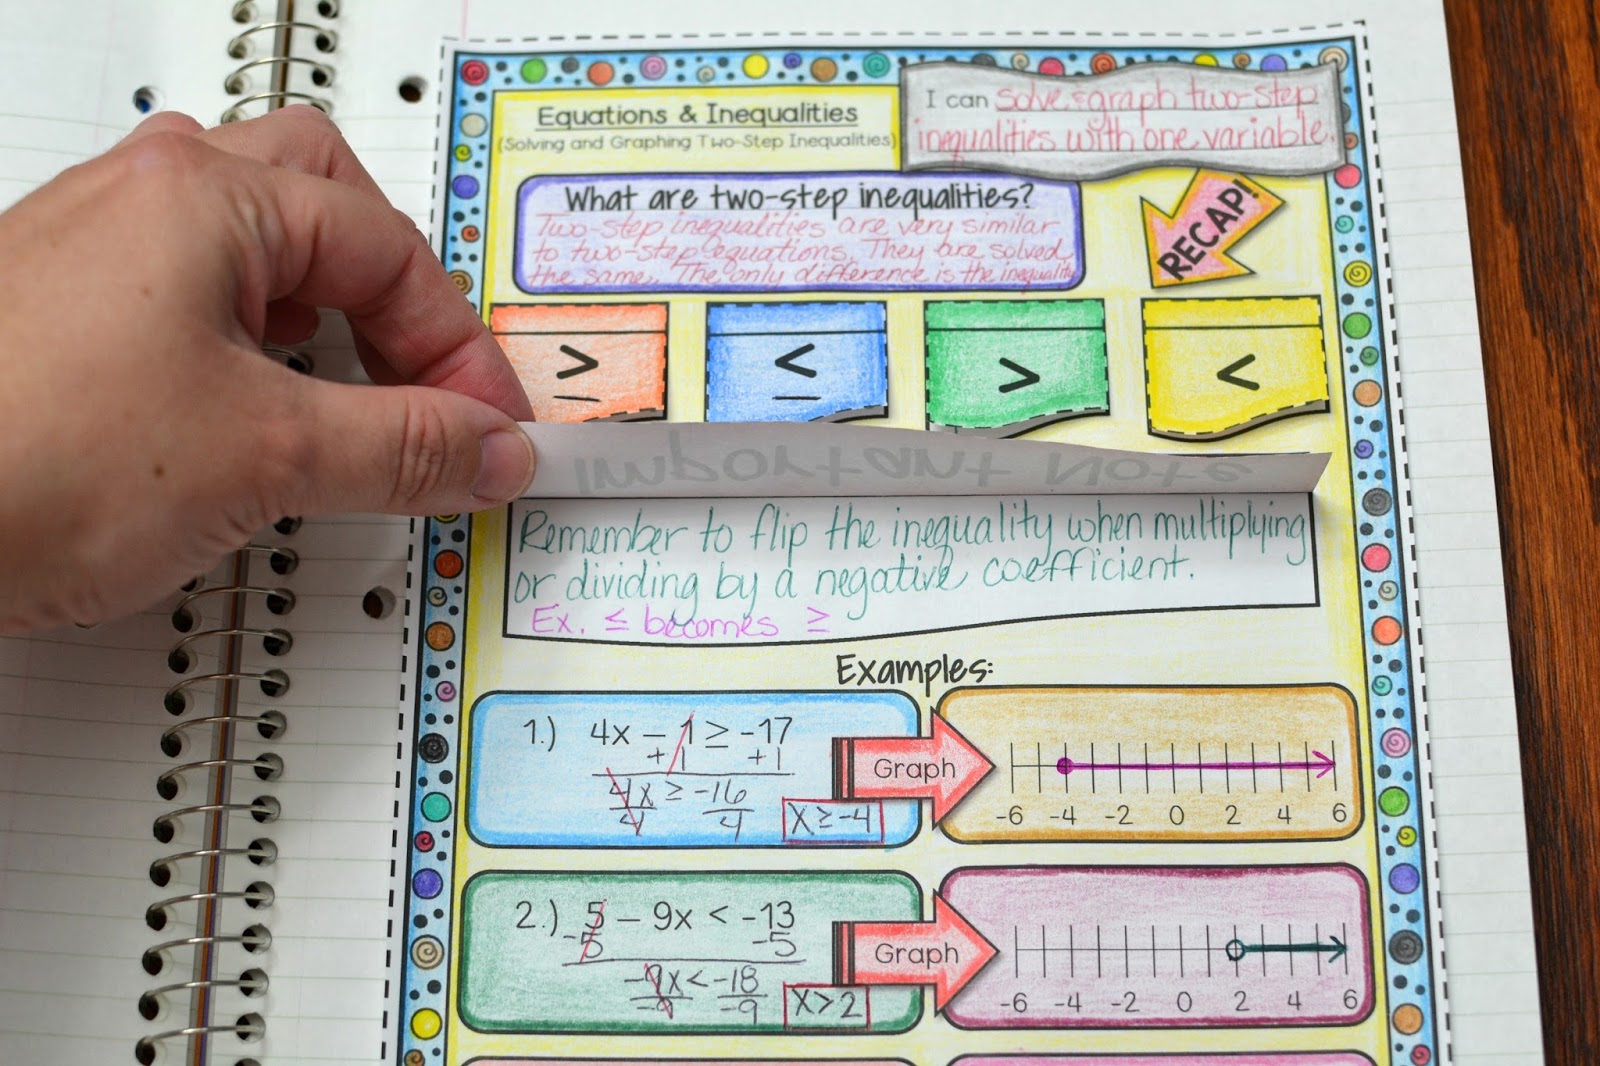 Equations & Inequalities
(Solving and Graphing Two-Step Inequalities)
I can solve & graph two-step
inequalities with one variable.
What are two-step inequalities?
Two-step inequalities are very similar
to two-step equations. They are solved
the same. The only difference is the inequality
RECAP!
≥ ≤ > <
Important Note
Remember to flip the inequality when multiplying
or dividing by a negative coefficient.
Ex. ≤ becomes ≥
Examples:
1.) 4x - 1 ≥ -17
+ 1 +1
4x ≥ -16
4 4
x ≥ -4
Graph
-6 -4 -2 0 2 4 6
2.) 5 - 9x < -13
-5 -5
-9x < -18
-9 -9
x > 2
Graph
-6 -4 -2 0 2 4 6